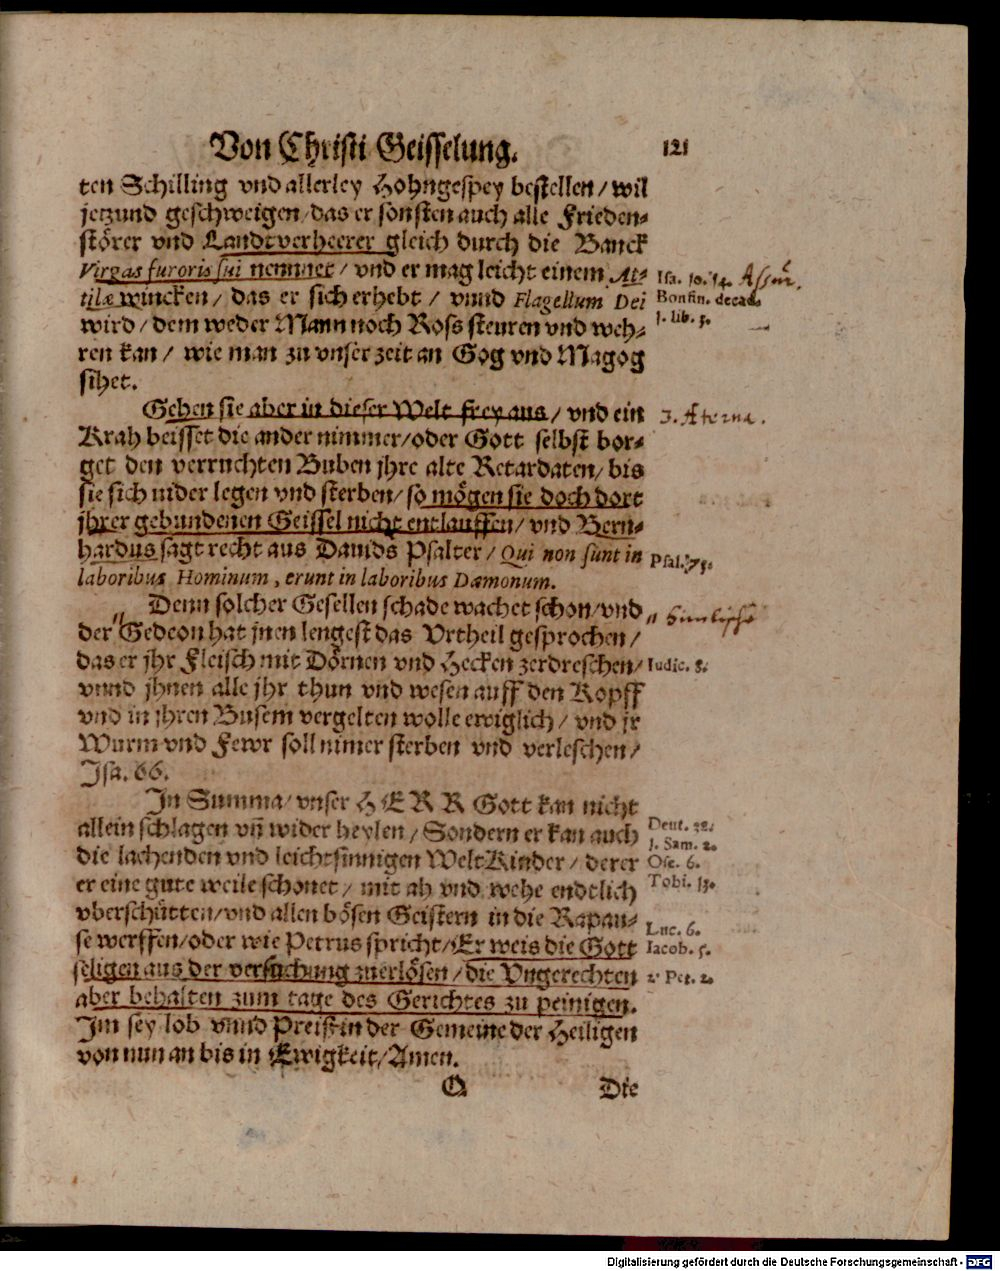 Von Christi Geisselung. 121
ten Schilling vnd allerley Hohngespey bestellen/ wil
jetzund geschweigen/ das er sonsten auch alle Frieden-
störer vnd Landtverheerer gleich durch die Banck
Virgas furoris sui nennnet/ vnd er mag leicht einem At-
tilæ wincken/ das er sich erhebt/ vnnd Flagellum Dei
wird/ dem weder Mann noch Ross steuren vnd weh-
ren kan/ wie man zu vnser zeit an Gog vnd Magog
sihet.
Isa. 10. 14. Assur.
Bonfin. decad.
1. lib. 3.
Gehen sie aber in dieser Welt frey aus/ vnd ein
Krah beisset die ander nimmer/ oder Gott selbst bor-
get den verruchten Buben jhre alte Retardaten/ bis
sie sich nider legen vnd sterben/ so mögen sie doch dort
jhrer gebundenen Geissel nicht entlauffen/ vnd Bern-
hardus sagt recht aus Dauids Psalter/ Qui non sunt in
laboribus Hominum, erunt in laboribus Dæmonum.
3. Æterna.
Psal. 73.
Denn solcher Gesellen schade wachet schon/ vnd
der Gedeon hat jnen lengest das Vrtheil gesprochen/
das er jhr Fleisch mit Dörnen vnd Hecken zerdreschen/
vnnd jhnen alle jhr thun vnd wesen auff den Kopff
vnd in jhren Busem vergelten wolle ewiglich/ vnd jr
Wurm vnd Fewr soll nimer sterben vnd verleschen/
Jsa. 66.
Iudic. 8.
In Summa/ vnser HERR Gott kan nicht
allein schlagen vñ wider heylen/ Sondern er kan auch
die lachenden vnd leichtsinnigen WeltKinder/ derer
er eine gute weile schonet/ mit ah vnd wehe endtlich
vberschütten/ vnd allen bösen Geistern in die Rapau-
se werffen/ oder wie Petrus spricht/ Er weis die Gott
seligen aus der versuchung zuerlösen/ die Vngerechten
aber behalten zum tage des Gerichtes zu peinigen.
Jm sey lob vnnd Preiß in der Gemeine der Heiligen
von nun an bis in Ewigkeit/ Amen.
Deut. 32.
1. Sam. 2.
Ose. 6.
Tobi. 13.
Luc. 6.
Iacob. 5.
2. Pet. 2.
Q Die
Digitalisierung gefördert durch die Deutsche Forschungsgemeinschaft - DFG